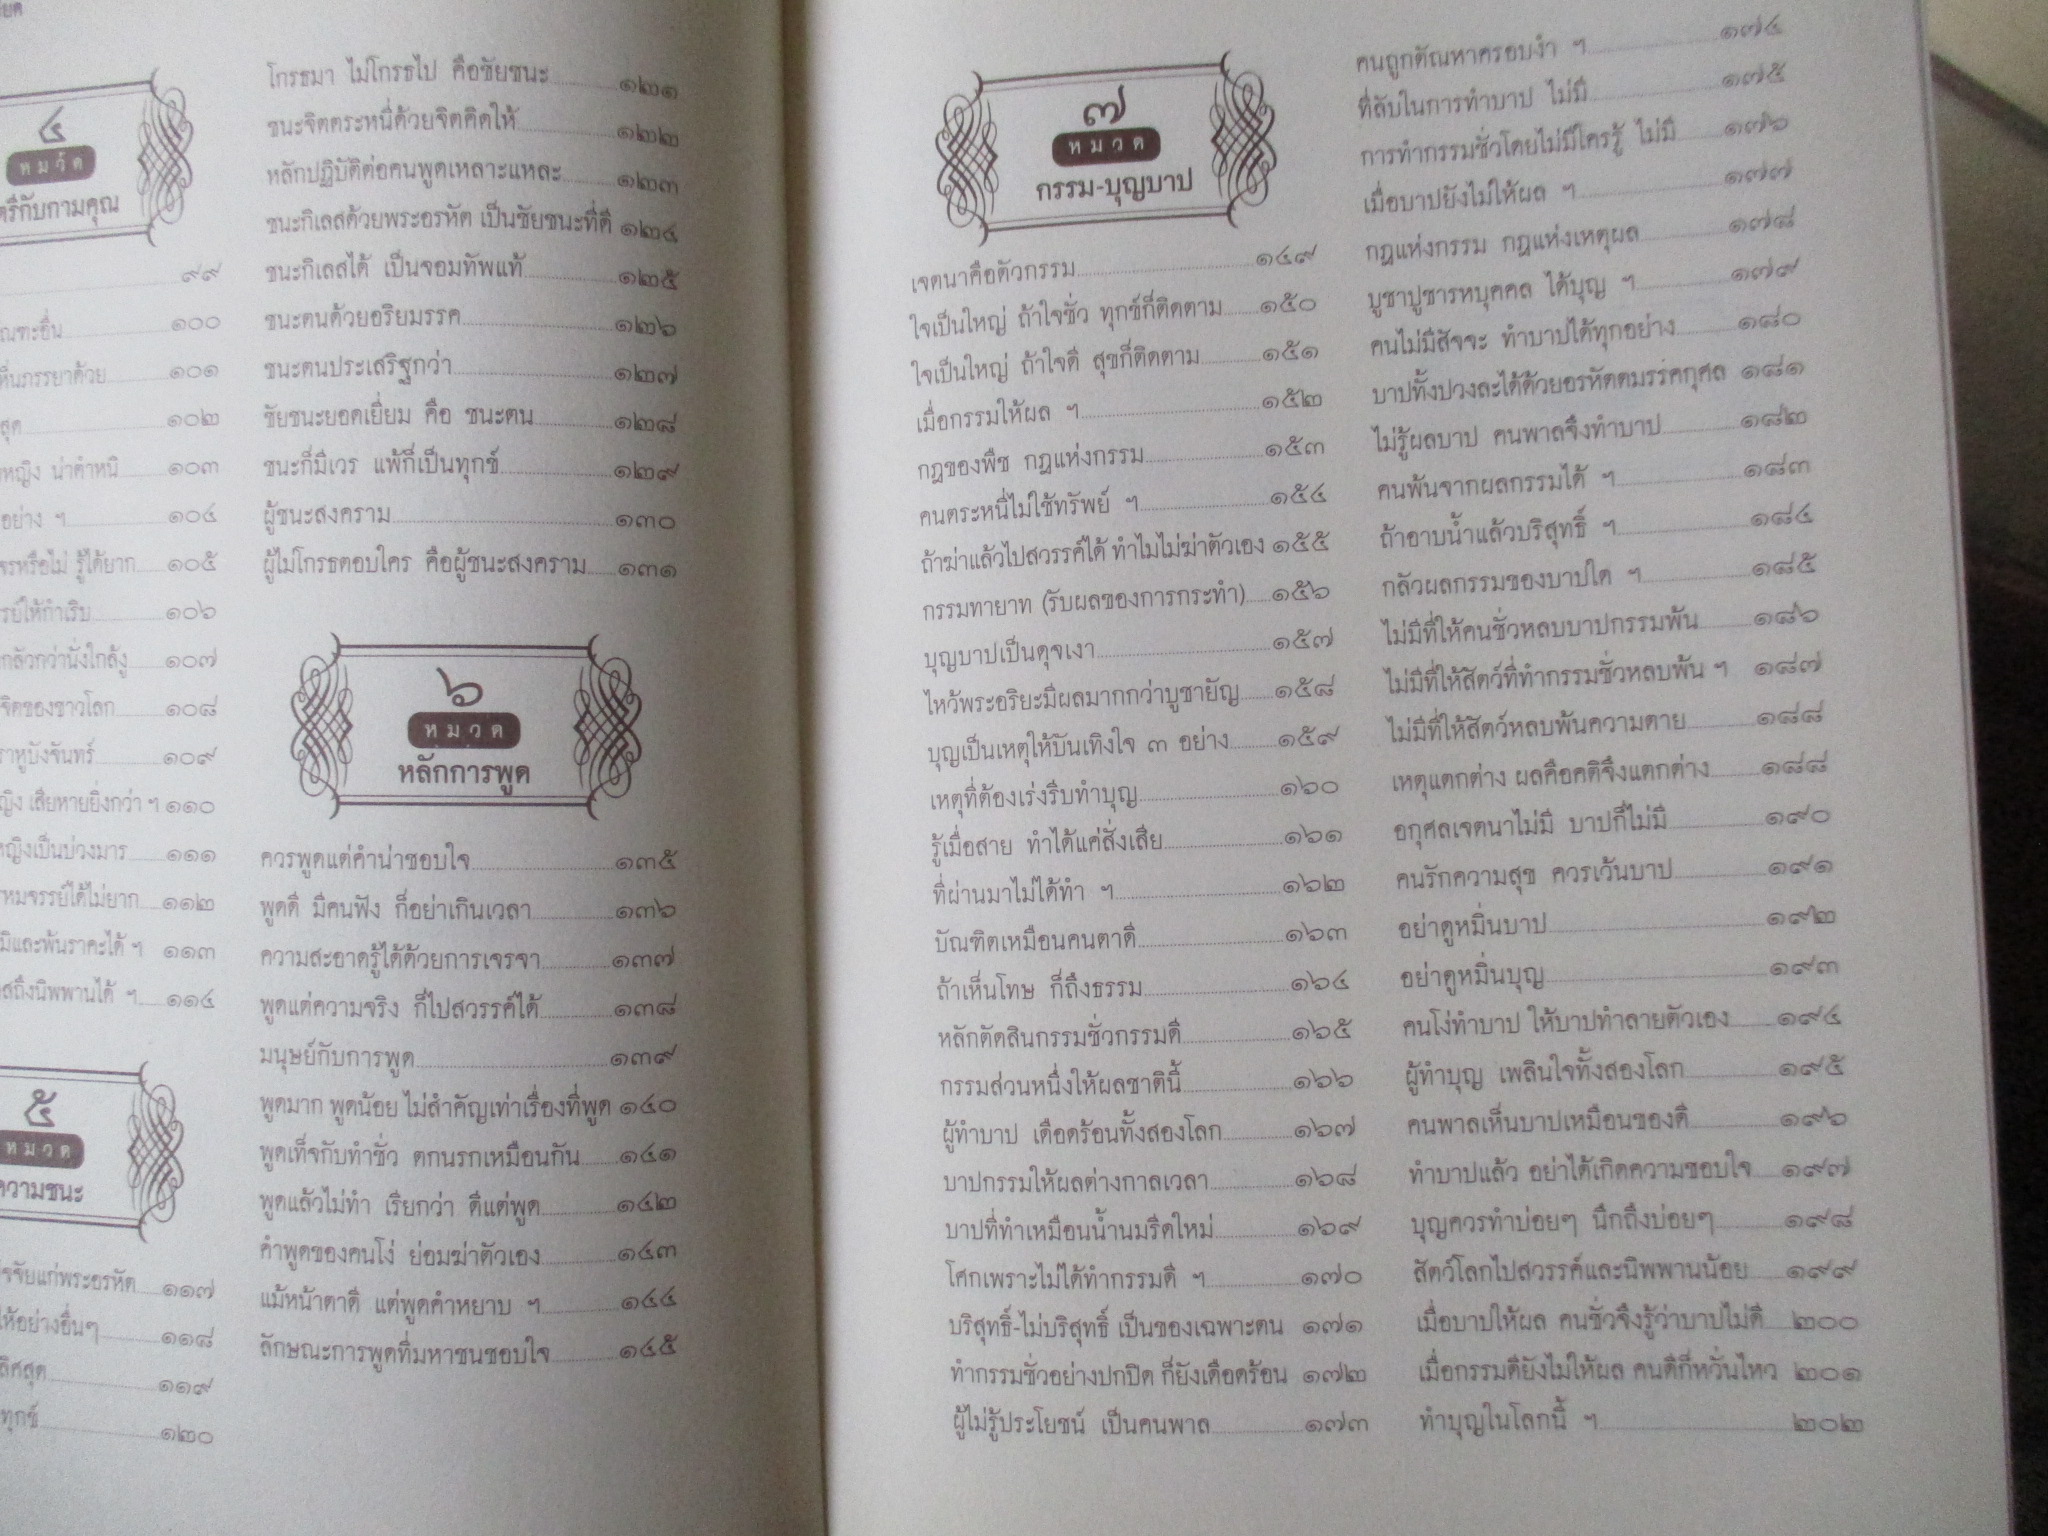 ๔
หมวด
ตรีกับกามคุณ
๙๙
๑๐๐
ภรรยาด้วย ๑๐๑
๑๐๒
หญิง น่าตำหนิ ๑๐๓
อย่าง ฯ ๑๐๔
จรหรือไม่ รู้ได้ยาก ๑๐๕
ให้กำเริบ ๑๐๖
กลัวกว่านั่งใกล้งู ๑๐๗
จิตของชาวโลก ๑๐๘
ราหูบังจันทร์ ๑๐๙
เสียหายยิ่งกว่า ฯ ๑๑๐
หญิงเป็นบ่วงมาร ๑๑๑
หมจรรย์ได้ไม่ยาก ๑๑๒
และพ้นราคะได้ ฯ ๑๑๓
ถึงนิพพานได้ ฯ ๑๑๔
๕
หมวด
ความชนะ
จจัยแก่พระอรหัต ๑๑๗
ให้อย่างอื่นๆ ๑๑๘
๑๑๙
ทุกข์ ๑๒๐
โกรธมา ไม่โกรธไป คือชัยชนะ ๑๒๑
ชนะจิตตระหนี่ด้วยจิตคิดให้ ๑๒๒
หลักปฏิบัติต่อคนพูดเหลาะแหละ ๑๒๓
ชนะกิเลสด้วยพระอรหัต เป็นชัยชนะที่ดี ๑๒๔
ชนะกิเลสได้ เป็นจอมทัพแท้ ๑๒๕
ชนะตนด้วยอริยมรรค ๑๒๖
ชนะตนประเสริฐกว่า ๑๒๗
ชัยชนะยอดเยี่ยม คือ ชนะตน ๑๒๘
ชนะก็มีเวร แพ้ก็เป็นทุกข์ ๑๒๙
ผู้ชนะสงคราม ๑๓๐
ผู้ไม่โกรธตอบใคร คือผู้ชนะสงคราม ๑๓๑
๖
หมวด
หลักการพูด
ควรพูดแต่คำน่าชอบใจ ๑๓๕
พูดดี มีคนฟัง ก็อย่าเกินเวลา ๑๓๖
ความสะอาดรู้ได้ด้วยการเจรจา ๑๓๗
พูดแต่ความจริง ก็ไปสวรรค์ได้ ๑๓๘
มนุษย์กับการพูด ๑๓๙
พูดมาก พูดน้อย ไม่สำคัญเท่าเรื่องที่พูด ๑๔๐
พูดเท็จกับทำชั่ว ตกนรกเหมือนกัน ๑๔๑
พูดแล้วไม่ทำ เรียกว่า ดีแต่พูด ๑๔๒
คำพูดของคนโง่ ย่อมฆ่าตัวเอง ๑๔๓
แม้หน้าตาดี แต่พูดคำหยาบ ฯ ๑๔๔
ลักษณะการพูดที่มหาชนชอบใจ ๑๔๕
๗
หมวด
กรรม-บุญบาป
เจตนาคือตัวกรรม ๑๔๙
ใจเป็นใหญ่ ถ้าใจชั่ว ทุกข์ก็ติดตาม ๑๕๐
ใจเป็นใหญ่ ถ้าใจดี สุขก็ติดตาม ๑๕๑
เมื่อกรรมให้ผล ฯ ๑๕๒
กฎของพืช กฎแห่งกรรม ๑๕๓
คนตระหนี่ไม่ใช้ทรัพย์ ฯ ๑๕๔
ถ้าฆ่าแล้วไปสวรรค์ได้ ทำไมไม่ฆ่าตัวเอง ๑๕๕
กรรมทายาท (รับผลของการกระทำ) ๑๕๖
บุญบาปเป็นดุจเงา ๑๕๗
ไหว้พระอริยะมีผลมากกว่าบูชายัญ ๑๕๘
บุญเป็นเหตุให้บันเทิงใจ ๓ อย่าง ๑๕๙
เหตุที่ต้องเร่งรีบทำบุญ ๑๖๐
รู้เมื่อสาย ทำได้แค่สั่งเสีย ๑๖๑
ที่ผ่านมาไม่ได้ทำ ฯ ๑๖๒
บัณฑิตเหมือนคนตาดี ๑๖๓
ถ้าเห็นโทษ ก็ถึงธรรม ๑๖๔
หลักตัดสินกรรมชั่วกรรมดี ๑๖๕
กรรมส่วนหนึ่งให้ผลชาตินี้ ๑๖๖
ผู้ทำบาป เดือดร้อนทั้งสองโลก ๑๖๗
บาปกรรมให้ผลต่างกาลเวลา ๑๖๘
บาปที่ทำเหมือนน้ำนมรีดใหม่ ๑๖๙
โศกเพราะไม่ได้ทำกรรมดี ฯ ๑๗๐
บริสุทธิ์-ไม่บริสุทธิ์ เป็นของเฉพาะตน ๑๗๑
ทำกรรมชั่วอย่างปกปิด ก็ยังเดือดร้อน ๑๗๒
ผู้ไม่รู้ประโยชน์ เป็นคนพาล ๑๗๓
คนถูกตัณหาครอบงำ ฯ ๑๗๔
ที่ลับในการทำบาป ไม่มี ๑๗๕
การทำกรรมชั่วโดยไม่มีใครรู้ ไม่มี ๑๗๖
เมื่อบาปยังไม่ให้ผล ฯ ๑๗๗
กฎแห่งกรรม กฎแห่งเหตุผล ๑๗๘
บูชาปูชารหบุคคล ได้บุญ ฯ ๑๗๙
คนไม่มีสัจจะ ทำบาปได้ทุกอย่าง ๑๘๐
บาปทั้งปวงละได้ด้วยอรหัตตมรรคกุศล ๑๘๑
ไม่รู้ผลบาป คนพาลจึงทำบาป ๑๘๒
คนพ้นจากผลกรรมได้ ฯ ๑๘๓
ถ้าอาบน้ำแล้วบริสุทธิ์ ฯ ๑๘๔
กลัวผลกรรมของบาปใด ฯ ๑๘๕
ไม่มีที่ให้คนชั่วหลบบาปกรรมพ้น ๑๘๖
ไม่มีที่ให้สัตว์ที่ทำกรรมชั่วหลบพ้น ฯ ๑๘๗
ไม่มีที่ให้สัตว์หลบพ้นความตาย ๑๘๘
เหตุแตกต่าง ผลคือคติจึงแตกต่าง ๑๘๘
อกุศลเจตนาไม่มี บาปก็ไม่มี ๑๙๐
คนรักความสุข ควรเว้นบาป ๑๙๑
อย่าดูหมิ่นบาป ๑๙๒
อย่าดูหมิ่นบุญ ๑๙๓
คนโง่ทำบาป ให้บาปทำลายตัวเอง ๑๙๔
ผู้ทำบุญ เพลินใจทั้งสองโลก ๑๙๕
คนพาลเห็นบาปเหมือนของดี ๑๙๖
ทำบาปแล้ว อย่าได้เกิดความชอบใจ ๑๙๗
บุญควรทำบ่อยๆ นึกถึงบ่อยๆ ๑๙๘
สัตว์โลกไปสวรรค์และนิพพานน้อย ๑๙๙
เมื่อบาปให้ผล คนชั่วจึงรู้ว่าบาปไม่ดี ๒๐๐
เมื่อกรรมดียังไม่ให้ผล คนดีก็หวั่นไหว ๒๐๑
ทำบุญในโลกนี้ ฯ ๒๐๒